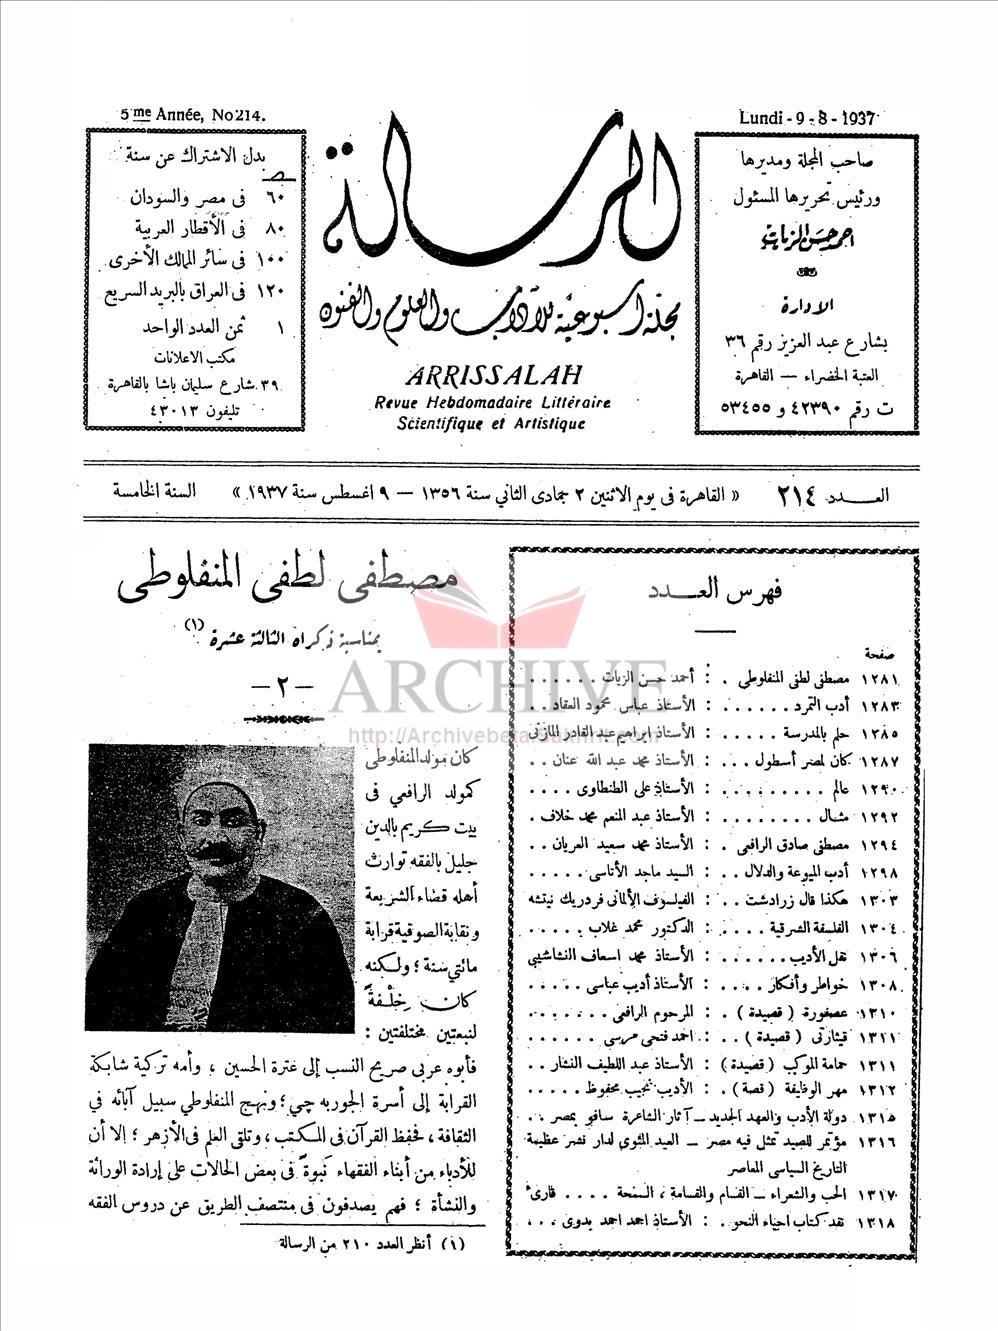 5me Année, No 214.
Lundi - 9 - 8 - 1937
صاحب المجلة ومديرها
ورئيس تحريرها المسئول
احمد حسن الزيات
الادارة
بشارع عبد العزيز رقم ٣٦
العتبة الخضراء — القاهرة
ت رقم ٤٢٣٩٠ و ٥٣٤٥٥
الرسالة
مجلة اسبوعية للآداب والعلوم والفنون
ARRISSALAH
Revue Hebdomadaire Littéraire
Scientifique et Artistique
بدل الاشتراك عن سنة
ص
٦٠ فى مصر والسودان
٨٠ فى الأقطار العربية
١٠٠ فى سائر الممالك الأخرى
١٢٠ فى العراق بالبريد السريع
١ ثمن العدد الواحد
مكتب الاعلانات
٣٩ شارع سليمان باشا بالقاهرة
تليفون ٤٣٠١٣
العـــدد ٢١٤ « القاهرة فى يوم الاثنين ٢ جمادى الثاني سنة ١٣٥٦ — ٩ اغسطس سنة ١٩٣٧ » السنة الخامسة
فهرس العـــدد
صفحة
١٢٨١ مصطفى لطفى المنفلوطي . : أحمد حسن الزيات . . . . . .
١٢٨٣ أدب التمرد . . . . . . : الأستاذ عباس محمود العقاد . .
١٢٨٥ حلم بالمدرسة . . . . . : الأستاذ ابراهيم عبد القادر المازنى
١٢٨٧ كان لمصر أسطول . . . : الأستاذ محمد عبد الله عنان . .
١٢٩٠ عالم . . . . . . . . . : الأستاذ على الطنطاوى . . . .
١٢٩٢ مثـال . . . . . . . . : الأستاذ عبد المنعم محمد خلاف .
١٢٩٤ مصطفى صادق الرافعى . : الأستاذ محمد سعيد العريان . .
١٢٩٨ أدب الميوعة والدلال . . : السيد ماجد الأتاسى . . . . .
١٣٠٣ هكذا قال زرادشت . . : الفيلسوف الألمانى فردريك نيتشه
١٣٠٤ الفلسفة الشرقية . . . . : الدكتور محمد غلاب . . . . .
١٣٠٦ نقل الأديب . . . . . . : الأستاذ محمد اسعاف النشاشيبى
١٣٠٨ خواطر وأفكار . . . . : الأستاذ أديب عباسى . . . . .
١٣١٠ عصفورة ( قصيدة ) . . : المرحوم الرافعى . . . . . . .
١٣١١ قيثارتى ( قصيدة ) . . : احمد فتحى مرسى . . . . . .
١٣١١ حمامة الموكب ( قصيدة ) : الأستاذ عبد اللطيف النشار . .
١٣١٢ مهر الوظيفة ( قصة ) . : الأديب نجيب محفوظ . . . . .
١٣١٥ دولة الأدب والعهد الجديد — آثار الشاعرة سافو بمصر . .
١٣١٦ مؤتمر للصيد تمثل فيه مصر — العيد المئوى لدار نشر عظيمة
التاريخ السياسى المعاصر
١٣١٧ الحب والشعراء — القسام والقسامة ، السمحة . . . . قارئ
١٣١٨ نقد كتاب احياء النحو . : الأستاذ احمد احمد بدوى . . .
مصطفى لطفى المنفلوطى
بمناسبة ذكراه الثالثة عشرة (١)
— ٢ —
كان مولد المنفلوطى
كمولد الرافعي فى
بيت كريم بالدين
جليل بالفقه توارث
أهله قضاء الشريعة
ونقابة الصوفية قرابة
مائتي سنة ؛ ولكنه
كان خِلْفةً
لنبعتين مختلفتين :
فأبوه عربى صريح النسب إلى عترة الحسين ، وأمه تركية شابكة
القرابة إلى أسرة الجوربه جي ؛ ونهج المنفلوطي سبيل آبائه في
الثقافة ، فحفظ القرآن فى المكتب ، وتلقى العلم فى الأزهر ؛ إلا أن
للأدباء من أبناء الفقهاء نَبوةً فى بعض الحالات على إرادة الوراثة
والنشأة ؛ فهم يصدفون فى منتصف الطريق عن دروس الفقه
(١) أنظر العدد ٢١٠ من الرسالة
ARCHIVE